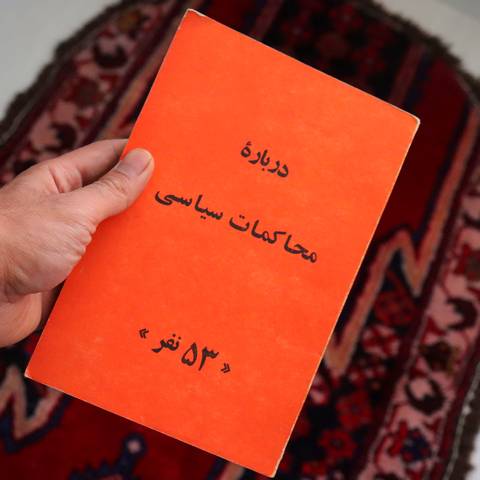 دربارهٔ
محاکمات سیاسی
« ۵۳ نفر »